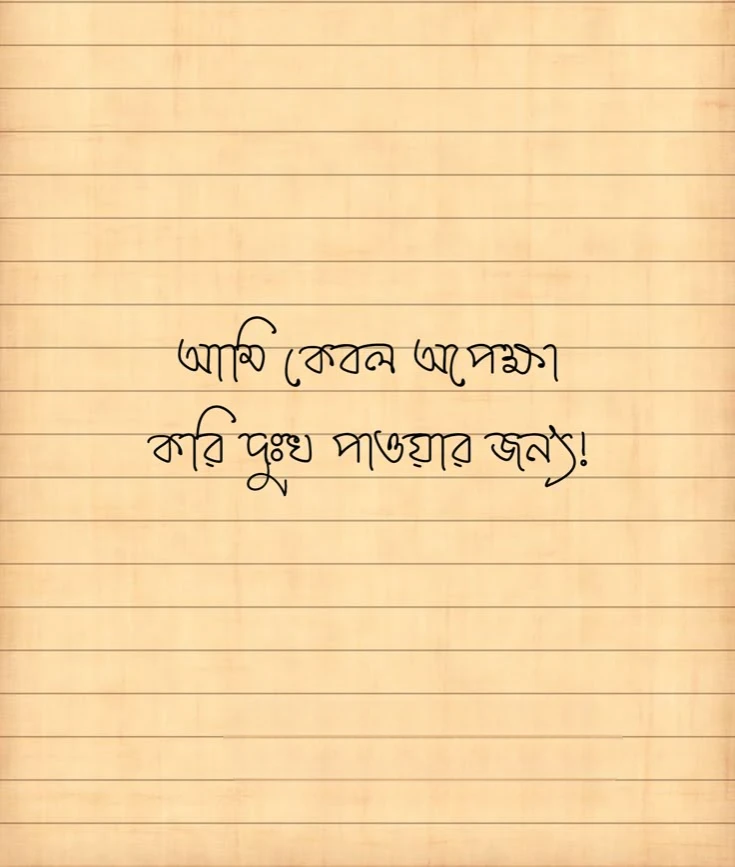 আমি কেবল অপেক্ষা
করি দুঃখ পাওয়ার জন্য!